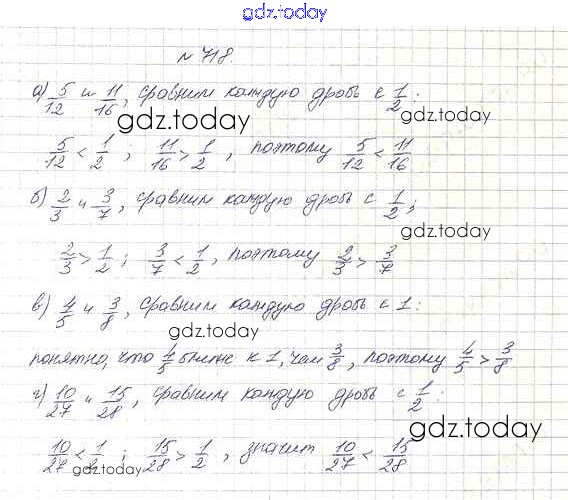 gdz.today
№ 718.
а) 5/12 и 11/16, сравним каждую дробь с 1/2:
gdz.today
gdz.today
5/12 < 1/2 ; 11/16 > 1/2 , поэтому 5/12 < 11/16
б) 2/3 и 3/7, сравним каждую дробь с 1/2;
gdz.today
2/3 > 1/2 ; 3/7 < 1/2 , поэтому 2/3 > 3/7
в) 4/5 и 3/8, сравним каждую дробь с 1:
gdz.today
понятно, что 4/5 ближе к 1, чем 3/8, поэтому 4/5 > 3/8
г) 10/27 и 15/28, сравним каждую дробь с 1/2:
gdz.today
10/27 < 1/2 ; 15/28 > 1/2 , значит 10/27 < 15/28
gdz.today